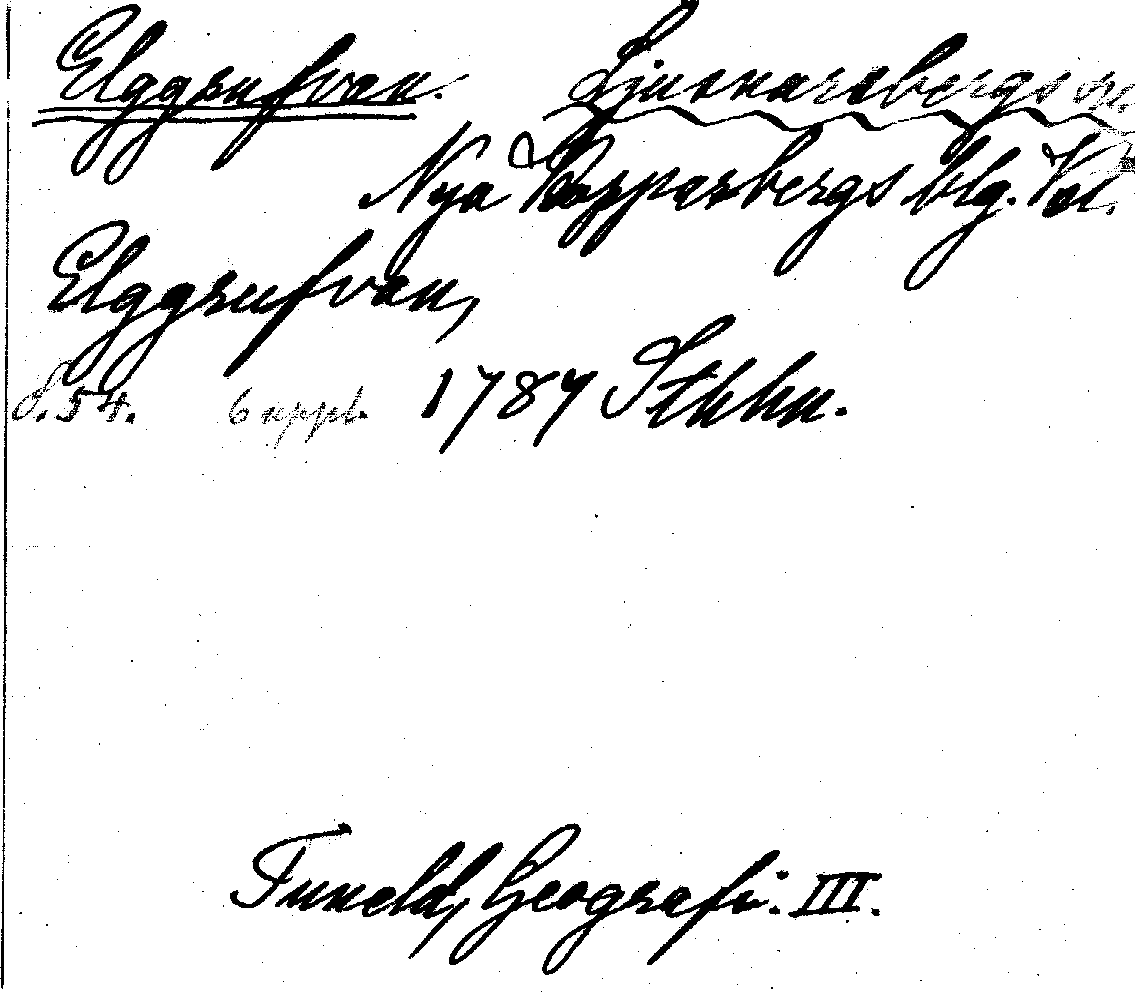 Elggrufvan. Ljusnarsbergs sn.
Nya Kopparbergs blg. Vol.
Elggrufvan,
s. 54. 6 uppl. 1787 Sthlm.
Tuneld, Geografi. III.